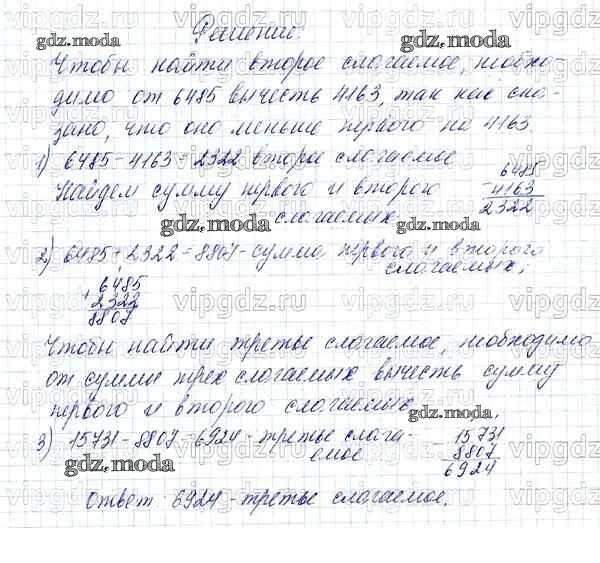 Решение:
Чтобы найти второе слагаемое, необхо-
димо от 6485 вычесть 4163, так как ска-
зано, что оно меньше первого на 4163.
1) 6485-4163=2322 второе слагаемые
6485
-4163
2322
Найдем сумму первого и второго
слагаемых.
2) 6485+2322=8807-сумма первого и второго
слагаемых;
6485
+2322
8807
Чтобы найти третье слагаемое, необходимо
от суммы трех слагаемых вычесть сумму
первого и второго слагаемых.
3) 15731-8807=6924-третье слага-
емое
15731
-8807
6924
Ответ: 6924-третье слагаемое.
gdz.moda
gdz.moda
gdz.moda
gdz.moda
gdz.moda
gdz.moda
vipgdz.ru